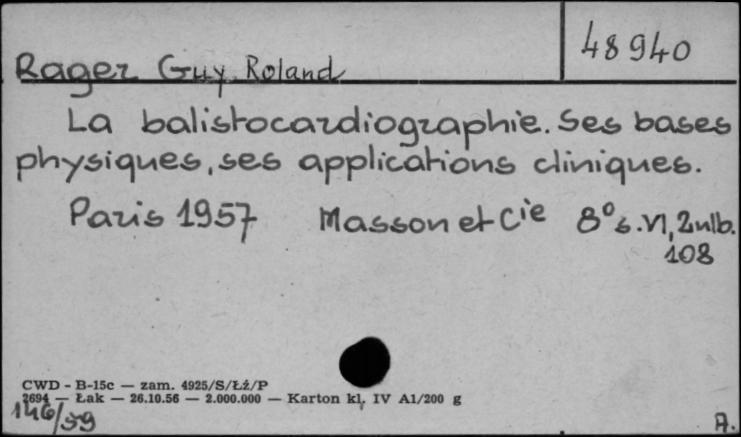 48940
Rager Guy, Roland
La balistocardiographie. Ses bases
physiques, ses applications cliniques.
Paris 1957 Masson et Cie 8° s. VI, 2nlb.
108
CWD - B-15c — zam. 4925/S/Łż/P
2694 — Łak — 26.10.56 — 2.000.000 — Karton kl. IV A1/200 g
146/59
A.